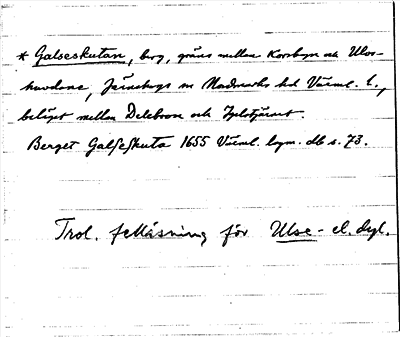 * Galseskutan, berg, gräns mellan Korsbyn och Ulvs-
kuvdene, Järnskogs sn Nordmarks hd Värml. l.,
beläget mellan Delebron och
Berget Galseskuta 1655 Värml. lagm. db s. 73.
Trol. felläsning för Ulse- el. dyl.